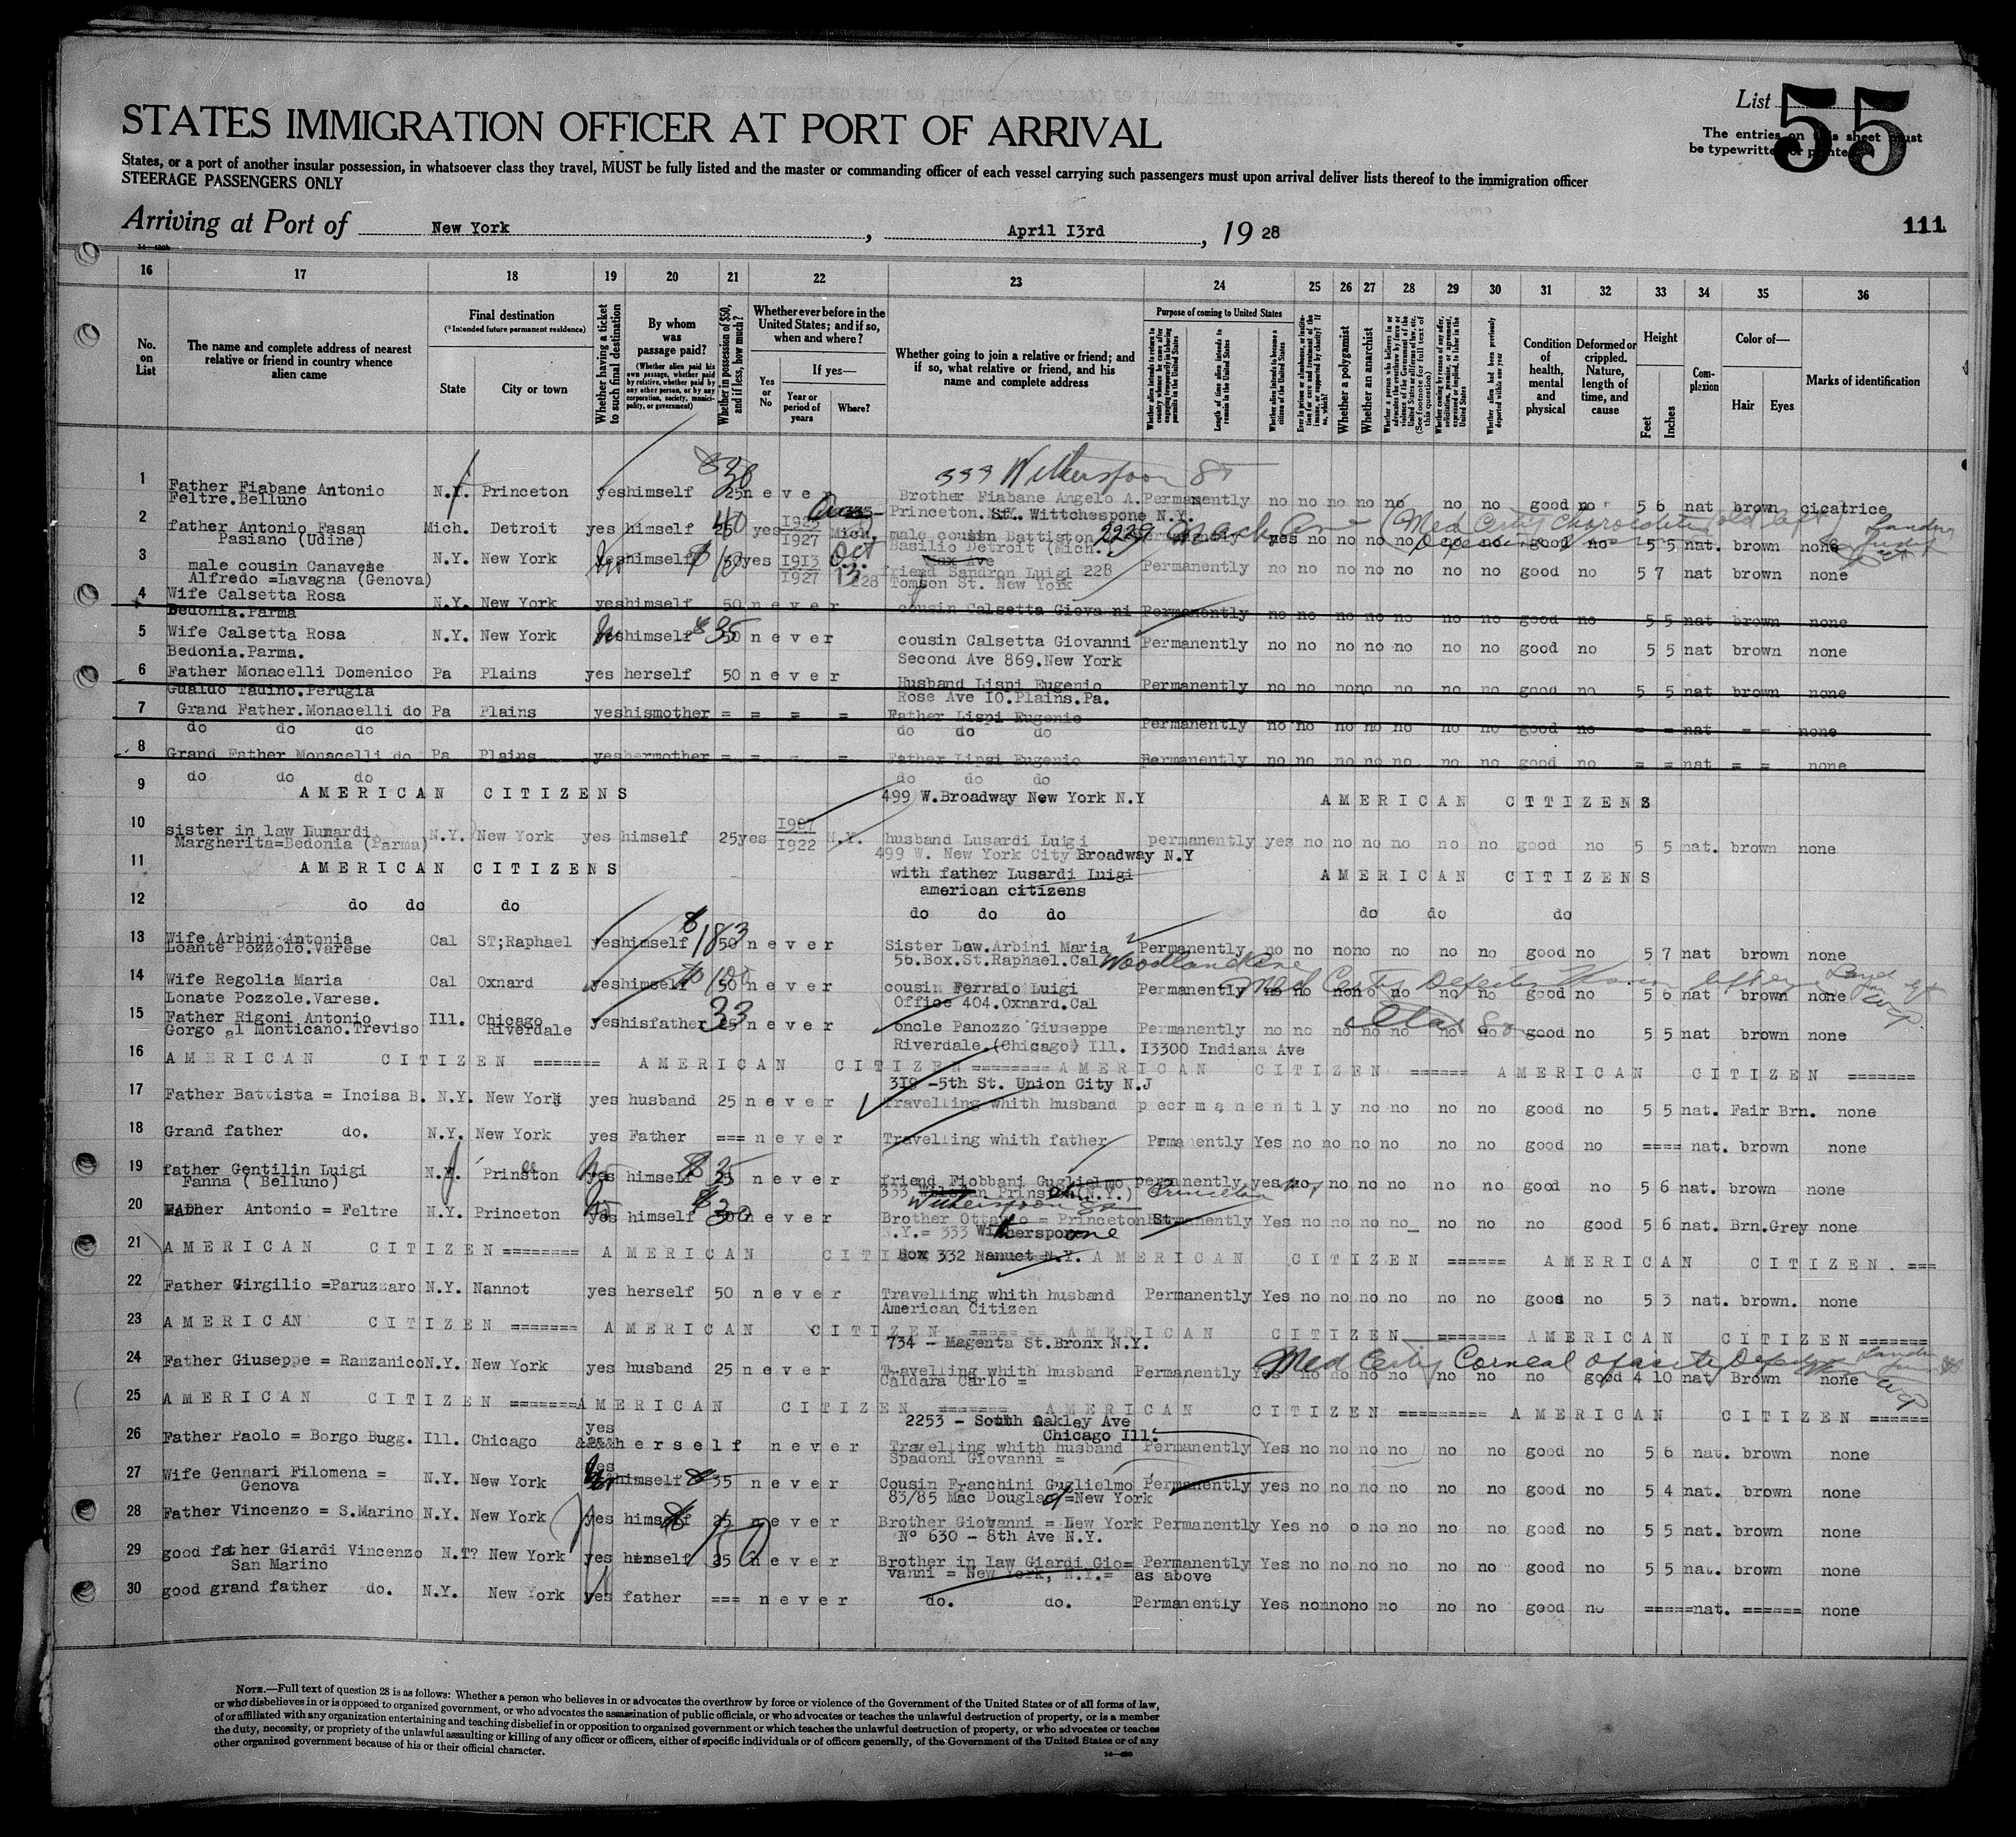 List 55
The entries on this sheet must
be typewritten or printed
STATES IMMIGRATION OFFICER AT PORT OF ARRIVAL
States, or a port of another insular possession, in whatsoever class they travel, MUST be fully listed and the master or commanding officer of each vessel carrying such passengers must upon arrival deliver lists thereof to the immigration officer
STEERAGE PASSENGERS ONLY
Arriving at Port of New York, April I3rd, 19 28
111
16 17 18 19 20 21 22 23 24 25 26 27 28 29 30 31 32 33 34 35 36
No. on List
The name and complete address of nearest relative or friend in country whence alien came
Final destination
(*Intended future permanent residence)
State
City or town
Whether having a ticket to such final destination
By whom was passage paid?
(Whether alien paid his own passage, whether paid by relative, whether paid by any other person, or by any corporation, society, municipality, or government)
Whether in possession of $50, and if less, how much?
Whether ever before in the United States; and if so, when and where?
Yes or No
If yes—
Year or period of years
Where?
Whether going to join a relative or friend; and if so, what relative or friend, and his name and complete address
Purpose of coming to United States
Whether a polygamist
Whether an anarchist
Condition of health, mental and physical
Deformed or crippled. Nature, length of time, and cause
Height
Feet
Inches
Complexion
Color of—
Hair
Eyes
Marks of identification
333 Witherspoon St
1 Father Fiabane Antonio N.Y. Princeton yes himself 25 never Brother Fiabane Angelo A. Permanently no no no no no no no good no 5 6 nat brown cicatrice
Feltre.Belluno Princeton. St. Wittchespone N.Y.
2 father Antonio Fasan Mich. Detroit yes himself 40 yes 1925 1927 Mich. male cousin Battiston 2229 Mack Ave yes no no no no no no good no 5 5 nat. brown none
Pasiano (Udine) Basilio Detroit (Mich.)
3 male cousin Canavese N.Y. New York yes himself yes 1913 1927 friend Sandron Luigi 228 Permanently no no no no no no no good no 5 7 nat brown none
Alfredo =Lavagna (Genova) Tomson St. New York
4 Wife Calsetta Rosa N.Y. New York yes himself 50 never cousin Calsetta Giovanni Permanently no no no no no no no good no 5 5 nat brown none
Bedonia.Parma
5 Wife Calsetta Rosa N.Y. New York yes himself $35 never cousin Calsetta Giovanni Permanently no no no no no no no good no 5 5 nat brown none
Bedonia.Parma. Second Ave 869.New York
6 Father Monacelli Domenico Pa Plains yes herself 50 never Husband Lispi Eugenio Permanently no no no no no no no good no 5 5 nat brown none
Gualdo Tadino.Perugia Rose Ave IO.Plains.Pa.
7 Grand Father.Monacelli do Pa Plains yes hismother = = = = Father Lispi Eugenio Permanently no no no no no no no good no = = nat = = none
do do do do do do
8 Grand Father Monacelli do Pa Plains yes hermother = = - = Father Lipsi Eugenio Permanently no no no no no no no good no = = nat = = none
do do do do do do
9 AMERICAN CITIZENS 499 W.Broadway New York N.Y AMERICAN CITIZENS
10 sister in law Lunardi N.Y. New York yes himself 25 yes 1907 1922 N.Y. husband Lusardi Luigi permanently yes no no no no no no good no 5 5 nat. brown none
Margherita=Bedonia (Parma) 499 W. New York City Broadway N.Y
11 AMERICAN CITIZENS with father Lusardi Luigi AMERICAN CITIZENS
american citizens
12 do do do do do do do do do
13 Wife Arbini Antonia Cal ST;Raphael yes himself $183 50 never Sister Law.Arbini Maria Permanently no no no no no no no good no 5 7 nat brown none
Loante Pozzolo.Varese 56.Box.St.Raphael.Cal Woodland Ave
14 Wife Regolia Maria Cal Oxnard yes himself 50 never cousin Ferraio Luigi Permanently no no no no no no no good no 5 6 nat brown none
Lonate Pozzole.Varese. Office 404.Oxnard.Cal Med Certif Defective Vision left eye
15 Father Rigoni Antonio Ill. Chicago yes hisfather 33 never oncle Panozzo Giuseppe Permanently no no no no no no no good no 5 5 nat brown none
Gorgo al Monticano.Treviso Riverdale Riverdale.(Chicago) Ill. I3300 Indiana Ave
16 AMERICAN CITIZEN ======= AMERICAN CITIZEN ======== AMERICAN CITIZEN ====== AMERICAN CITIZEN =======
318 -5th St. Union City N.J
17 Father Battista = Incisa B. N.Y. New York yes husband 25 never Travelling whith husband pecrmanently no no no no good no 5 5 nat. Fair Brn. none
18 Grand father do. N.Y. New York yes Father === never Travelling whith father Prmanently Yes no no no no no no good no ==== nat. brown none
19 father Gentilin Luigi N.Y. Prinston yes himself $35 never friend Fiobbani Guglielmo permanently yes no no no no no no good no 5 6 nat. brown none
Fanna ( Belluno) 333 Prinston (N.Y.) Princeton
Witherspoon St
20 Father Antonio = Feltre N.Y. Princeton yes himself never Brother Ottavio = Princeton Permanently Yes no no no no no no no good 5 6 nat. Brn.Grey none
N.Y.= 333 Witherspone
21 AMERICAN CITIZEN ======== AMERICAN CITIZEN Box 332 Nanuet N.Y. AMERICAN CITIZEN ====== AMERICAN CITIZEN. ===
22 Father Girgilio =Paruzzaro N.Y. Nannot yes herself 50 never Travelling whith husband Permanently Yes no no no no no no good no 5 3 nat. brown. none
American Citizen
23 AMERICAN CITIZEN ======= AMERICAN CITIZEN AMERICAN CITIZEN ======= AMERICAN CITIZEN =======
734 - Magenta St.Bronx N.Y.
24 Father Giuseppe = Ranzanico N.Y. New York yes husband 25 never Travelling whith husband Permanently Yes no no no no no no no good 4 10 nat Brown none
Caldara Carlo = Med Certif Corneal opacity Defective Vision
25 AMERICAN CITIZEN =======AMERICAN CITIZEN AMERICAN CITIZEN ========= AMERICAN CITIZEN ======
2253 - South Oakley Ave
Chicago Ill.
26 Father Paolo = Borgo Bugg. Ill. Chicago yes herself never Travelling whith husband Permanently Yes no no no no no no good no 5 6 nat. brown none
Spadoni Giovanni =
27 Wife Gennari Filomena = N.Y. New York yes himself $35 never Cousin Franchini Guglielmo Permanently yes no no no no no no good no 5 4 nat. brown none
Genova 83/85 Mac Dougla =New York
28 Father Vincenzo = S.Marino N.Y. New York yes himself 25 never Brother Giovanni = New York Permanently Yes no o no no no no good no 5 5 nat. brown none
N° 630 - 8th Ave N.Y.
29 good father Giardi Vincenzo N.T? New York yes himself 25 never Brother in law Giardi Gio= Permanently Yes no no no no no no good no 5 5 nat. brown none
San Marino vanni = New York, N.Y.= as above
30 good grand father do. N.Y. New York yes father === never do. do. Permanently Yes no no no no no no no good no ===== nat. ====== none
NOTE.—Full text of question 28 is as follows: Whether a person who believes in or advocates the overthrow by force or violence of the Government of the United States or of all forms of law,
or who disbelieves in or is opposed to organized government, or who advocates the assassination of public officials, or who advocates or teaches the unlawful destruction of property, or is a member
of or affiliated with any organization entertaining and teaching disbelief in or opposition to organized government or which teaches the unlawful destruction of property, or who advocates or teaches
the duty, necessity, or propriety of the unlawful assaulting or killing of any officer or officers, either of specific individuals or of officers generally, of the Government of the United States or of any
other organized government because of his or their official character.